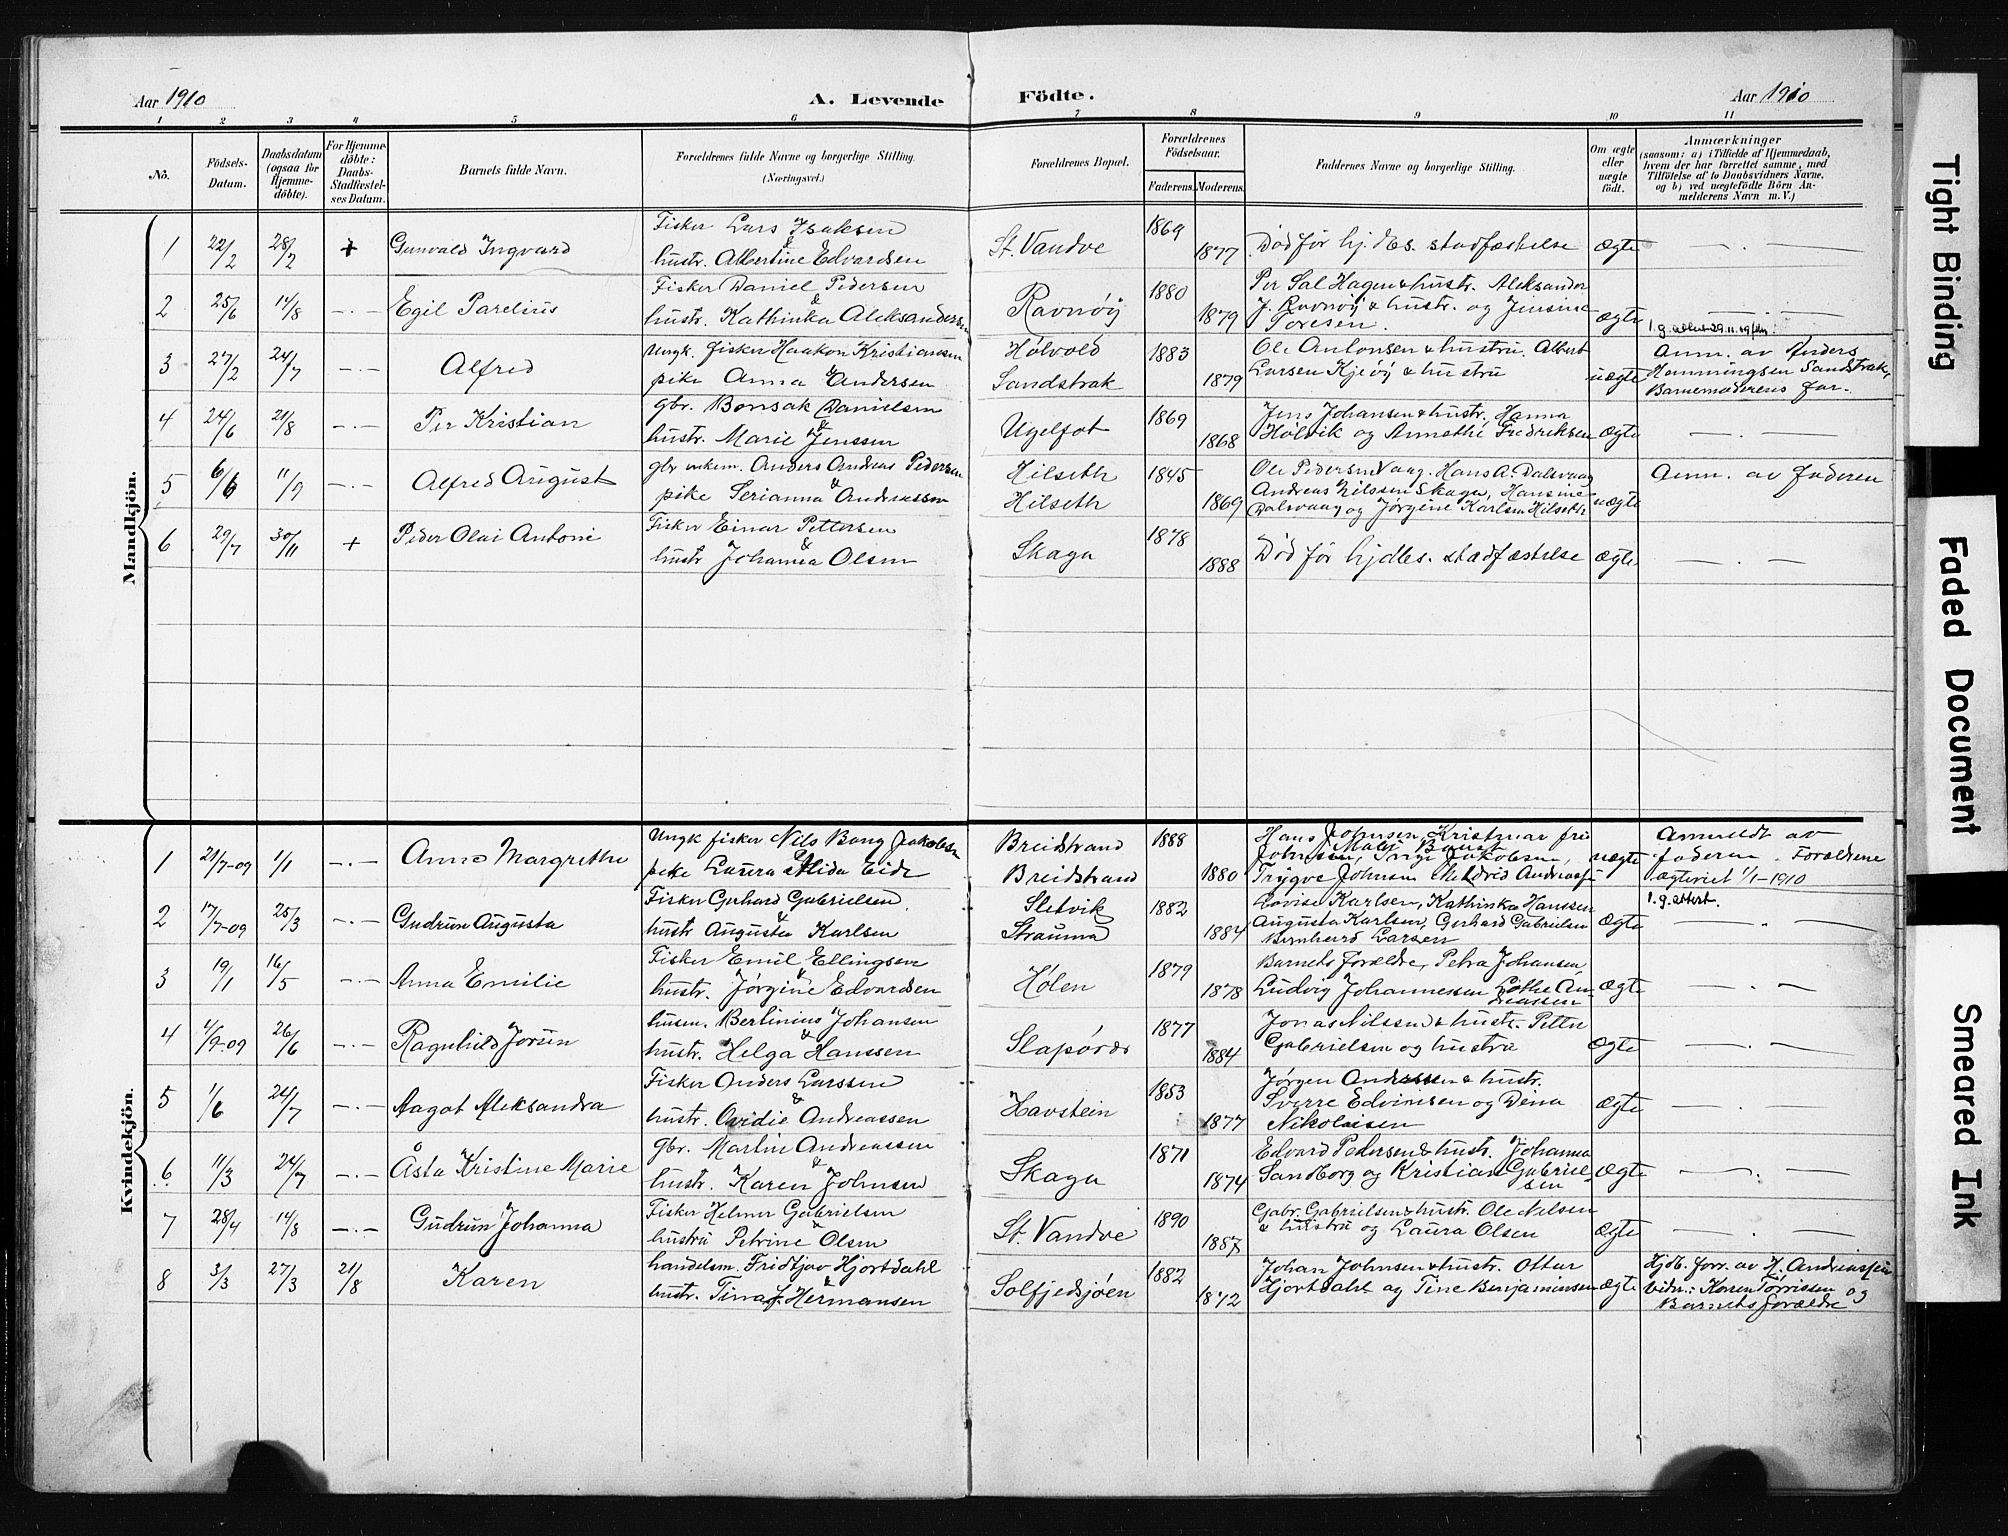 Aar 1910
A. Levende Födte.
Aar 1910
1 2 3 4 5 6 7 8 9 10 11
No.
Födsels-Datum.
Daabsdatum (ogsaa for Hjemme-döbte).
For Hjemme-döbte: Daabs-Stadfæstel-ses Datum.
Barnets fulde Navn.
Forældrenes fulde Navne og borgerlige Stilling.
(Næringsvei.)
Forældrenes Bopæl.
Forældrenes Födselsaar.
Faderens. Moderens.
Faddernes Navne og borgerlige Stilling.
Om ægte eller uægte födt.
Anmærkninger
(saasom: a) i Tilfælde af Hjemmedaab,
hvem der har forrettet samme, med
Tilföielse af to Daabsvidners Navne,
og b) ved uægtefödte Börn An-
melderens Navn m.V.)
Mandkjön.
1 22/2 28/2 + Gunvald Ingvard
Fisker Lars Isaksen &
hustr. Albertine Edvardsen
St. Vandve 1869 1877
Død før hjdbs. stadfæstelse ægte — . —
2 25/6 14/8 -.- Egil Parelius
Fisker Daniel Pedersen &
hustr. Kathinka Aleksandersen
Ravnøy 1880 1879
Per Sal Hagen & hustr. Aleksander
J. Ravnøy & hustr. og Jensine
Toresen. ægte — . —
1. g. attest 29.11.49
3 27/2 24/7 -.- Alfred
Ungk. fisker Haakon Kristiansen &
pike Anna Andersen
Hølvold
Sandstrak 1883 1879
Ole Antonsen & hustru. Albert
Larsen Kjeøy & hustru uægte
Anm. av Anders
Hemmingsen Sandstrak,
Barnemoderens far.
4 24/6 21/8 -.- Per Kristian
gbr. Bonsak Danielsen &
hustr. Marie Jenssen
Ugelfot 1869 1868
Jens Johansen & hustr. Hanna
Hølvik og Annethe Fredriksen ægte — . —
5 6/6 11/9 -.- Alfred August
gbr enkem. Anders Andreas Pedersen &
pike Serianna Andreassen
Hilseth
Hilseth 1845 1869
Ole Pedersen Vaag. Hans A. Dalsvaag
Andreas Nilssen Skaga, Hansine
Dalsvaag og Jørgine Karlsen Hilseth uægte
Anm. av faderen
6 29/7 30/11 + Peder Olai Antoni
Fisker Einar Pettersen &
hustr Johanna Olsen
Skaga 1878 1888
Død før hjdbs. stadfæstelse ægte — . —
Kvindekjön.
1 21/7-09 1/1 -.- Anna Margrethe
Ungk fisker Nils Bang Jakobsen
pike Laura Alida Eide
Breidstrand
Breidstrand 1888 1880
Hans Johnsen, Kristmar
Johnsen, Inga Jakobsen,
Trygve Johnsen uægte
Anmeldt av
faderen. Forældrene
ægteviet 1/1-1910
2 17/7-09 25/3 -.- Gudrun Augusta
Fisker Gerhard Gabrielsen &
hustr Augusta Karlsen
Sletvik
Strauma 1882 1884
Lovise Karlsen, Kathinka Hanssen
Augusta Karlsen, Gerhard Gabrielsen
Bernhard Larsen ægte
1. g. attest.
— . —
3 19/1 16/5 -.- Anna Emilie
Fisker Emil Ellingsen &
hustr. Jørgine Edvardsen
Hølen 1879 1878
Barnets forældre, Petra Johansen,
Ludvig Johannessen Lothe An-
dreassen ægte — . —
4 1/9-09 26/6 -.- Ragnhild Jorun
husm. Bertinius Johansen &
hustr. Helga Hanssen
Slapøren 1877 1884
Jonas Nilssen & hustr. Petter
Gabrielsen og hustru ægte — . —
5 1/6 24/7 -.- Aagot Aleksandra
Fisker Anders Larssen &
hustr. Ovidie Andreassen
Havstein 1853 1877
Jørgen Andreassen & hustr.
Sverre Edvinsen og Dina
Nikolaisen ægte — . —
6 11/3 24/7 -.- Åsta Kristine Marie
gbr. Martin Andreassen &
hustr. Karen Johnsen
Skaga 1871 1874
Edvard Pedersen & hustr. Johanna
Sandborg og Kristian Gabriel-
sen ægte — . —
7 28/4 14/8 -.- Gudrun Johanna
Fisker Helmer Gabrielsen &
hustru Petrine Olsen
St. Vandve 1890 1887
Gabr. Gabrielsen & hustr. Ole Nilsen
& hustru og Laura Olsen ægte — . —
8 3/3 27/3 21/8 Karen
handelsm. Fridtjov Hjortdahl &
hustr. Tina J. Hermansen
Solfjedsjøen 1882 1872
Johan Johnsen & hustr. Ottar
Hjortdahl og Tine Benjaminsen ægte
Hjdb. forr. av H. Andreassen
vidn.: Karen Torrissen og
Barnets forældre
Tight Binding
Faded Document
Smeared Ink